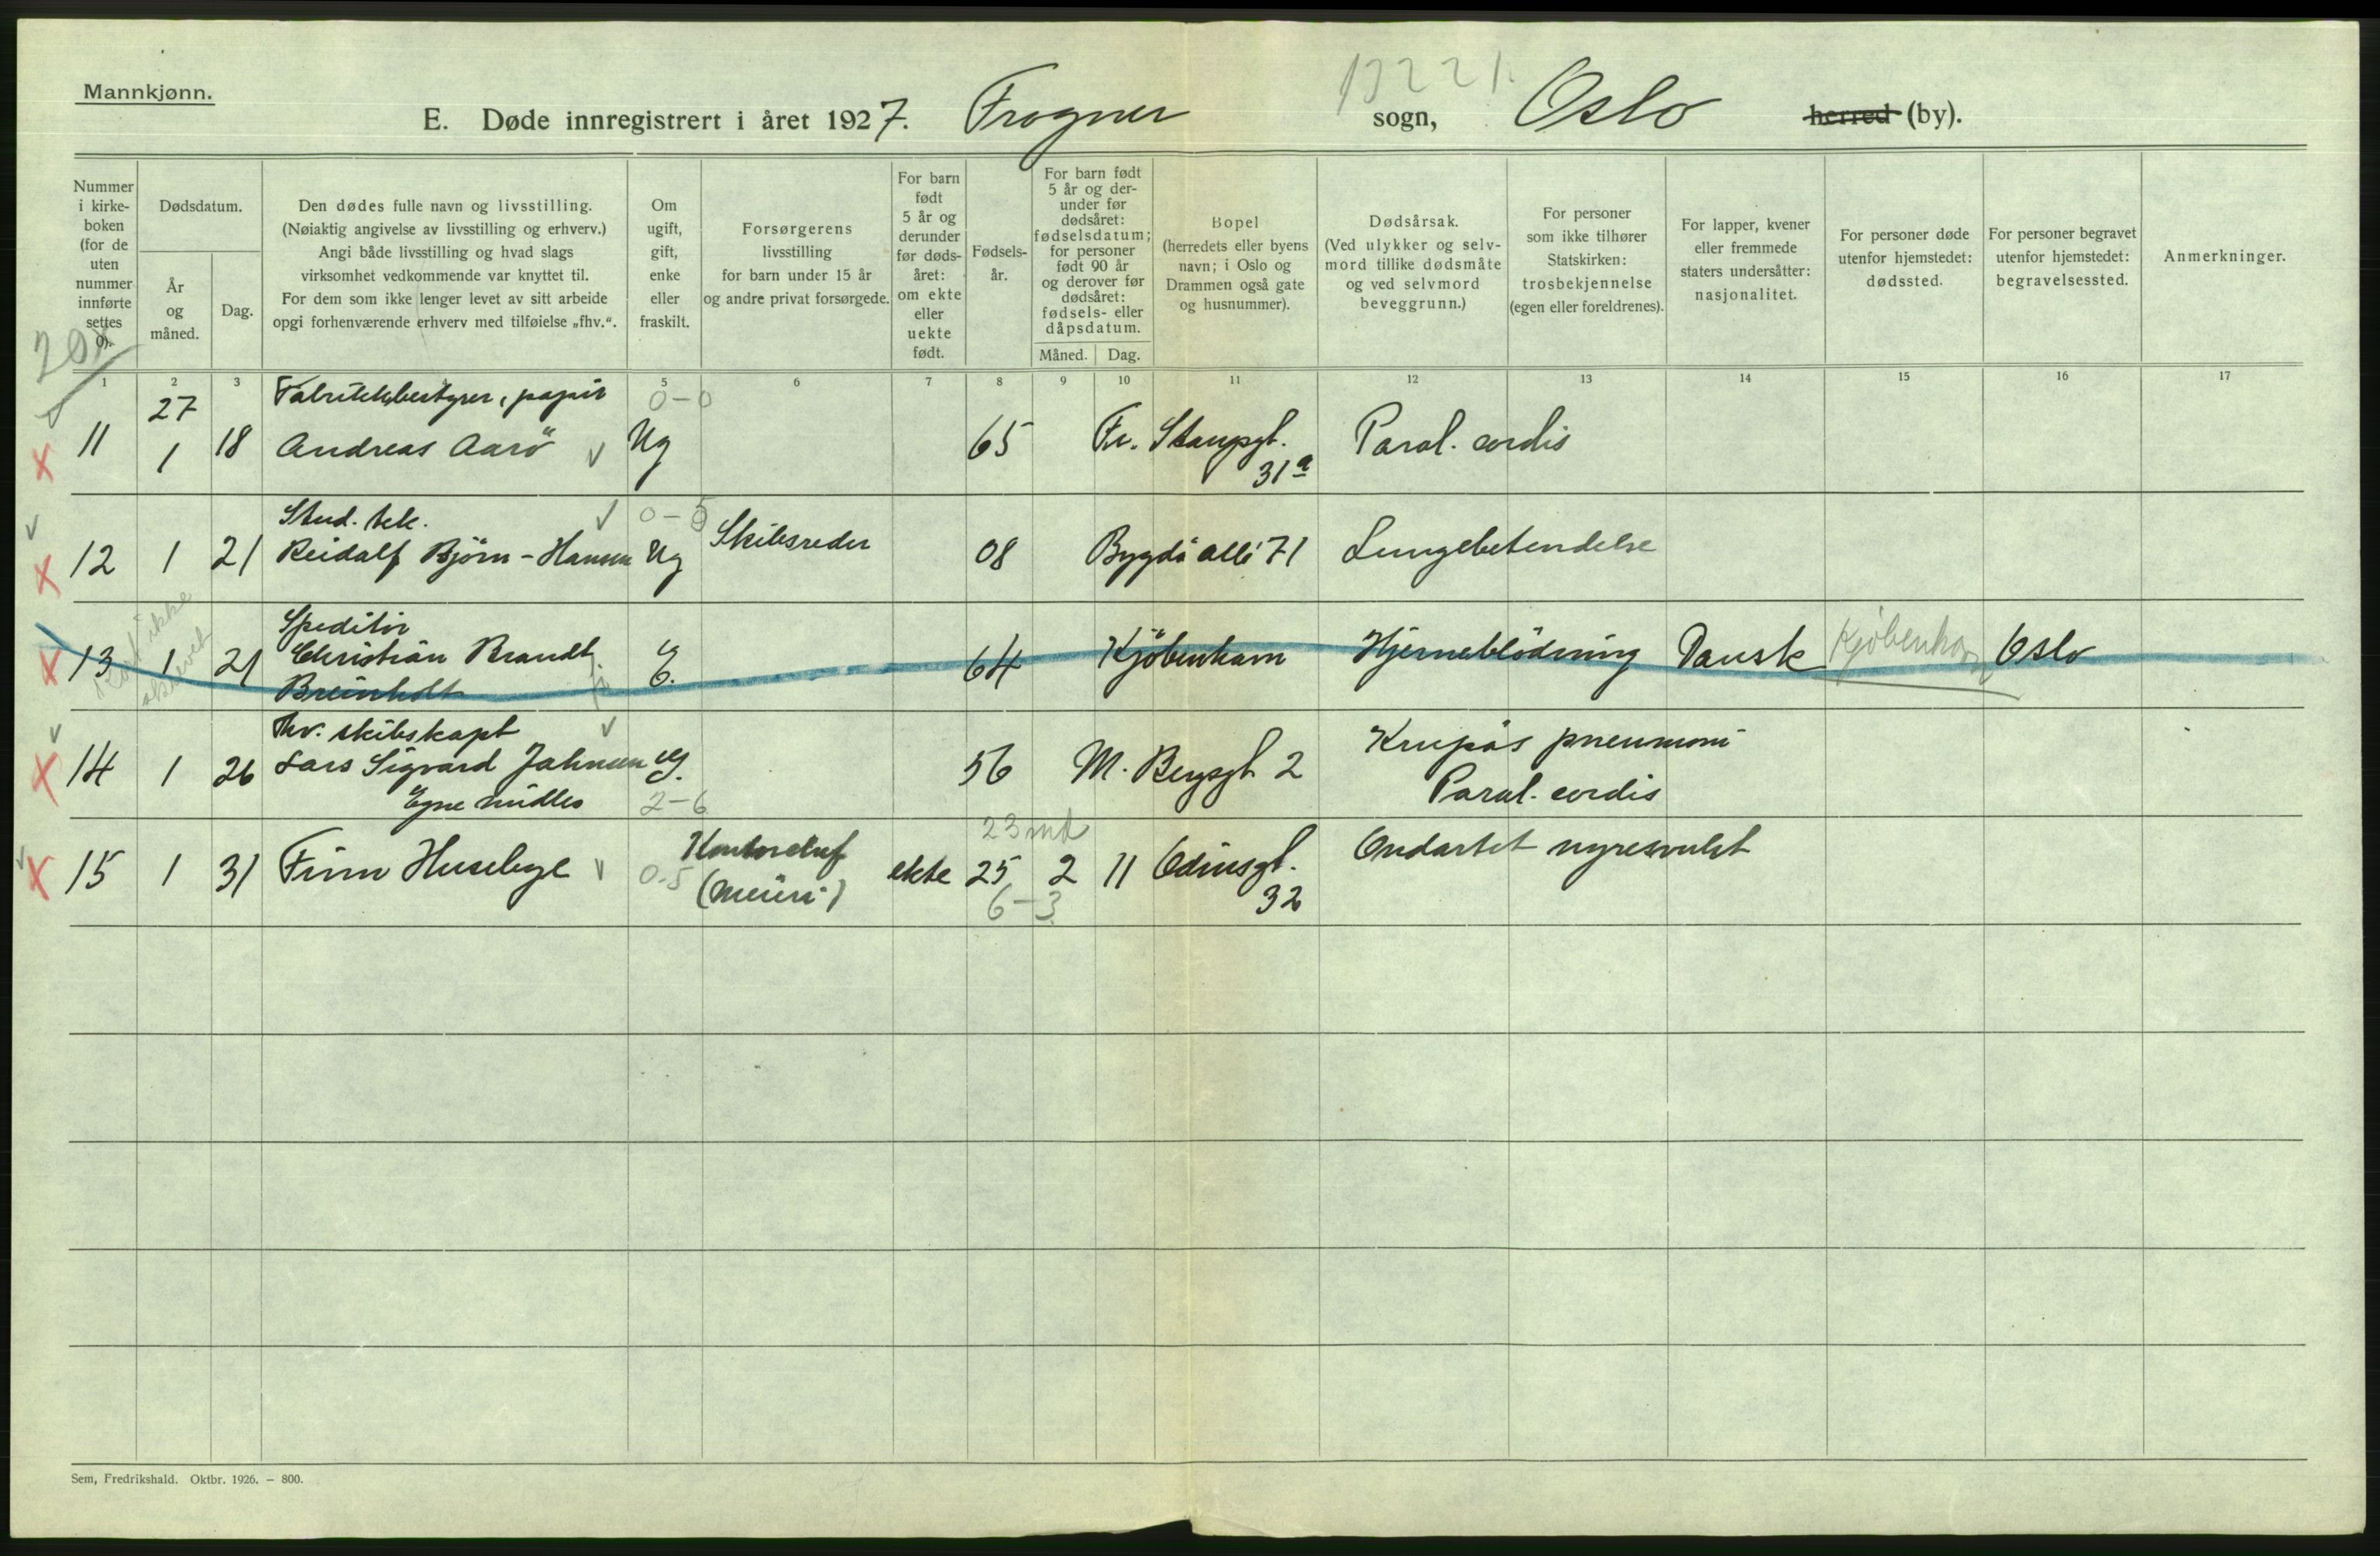 Mannkjønn.
13221.
E. Døde innregistrert i året 1927. Frogner sogn, Oslo herred (by).
Nummer i kirke-boken (for de uten nummer innførte settes 0).
Dødsdatum.
År og måned.
Dag.
Den dødes fulle navn og livsstilling.
(Nøiaktig angivelse av livsstilling og erhverv.)
Angi både livsstilling og hvad slags
virksomhet vedkommende var knyttet til.
For dem som ikke lenger levet av sitt arbeide
opgi forhenværende erhverv med tilføielse „fhv.“.
Om ugift, gift, enke eller fraskilt.
Forsørgerens
livsstilling
for barn under 15 år
og andre privat forsørgede.
For barn født 5 år og derunder før døds-året: om ekte eller uekte født.
Fødsels-år.
For barn født 5 år og der-under før dødsåret: fødselsdatum; for personer født 90 år og derover før dødsåret: fødsels- eller dåpsdatum.
Måned. Dag.
Bopel
(herredets eller byens
navn; i Oslo og
Drammen også gate
og husnummer).
Dødsårsak.
(Ved ulykker og selv-
mord tillike dødsmåte
og ved selvmord
beveggrunn.)
For personer
som ikke tilhører
Statskirken:
trosbekjennelse
(egen eller foreldrenes).
For lapper, kvener
eller fremmede
staters undersåtter:
nasjonalitet.
For personer døde
utenfor hjemstedet:
dødssted.
For personer begravet
utenfor hjemstedet:
begravelsessted.
Anmerkninger.
1 2 3 5 6 7 8 9 10 11 12 13 14 15 16 17
27 Fabrikkbestyrer, papir 0-0
11 1 18 Andreas Aarö Ug 65 Fr. Stangsgt. Paral. cordis
31a
Stud. tek. 0-5
12 1 21 Reidalf Björn-Hansen Ug Skibsreder 08 Bygdö allé 71 Lungebetendelse
Speditör
13 1 21 Christian Brandt G. 64 Kjöbenhavn Hjerneblödning Dansk Kjöbenhavn Oslo
Breinholt
fhv. skibskapt
14 1 26 Lars Sigvard Jahnsen G. 56 M. Bergsgt 2 Krupös pneumoni
Egne midler 2-6 Paral. cordis
23 md
15 1 31 Finn Husebye 0-5 Kontorchef ekte 25 2 11 Odinsgt. Ondartet nyresvulst
(meieri) 6-3 32
Sem, Fredrikshald. Oktbr. 1926. – 800.